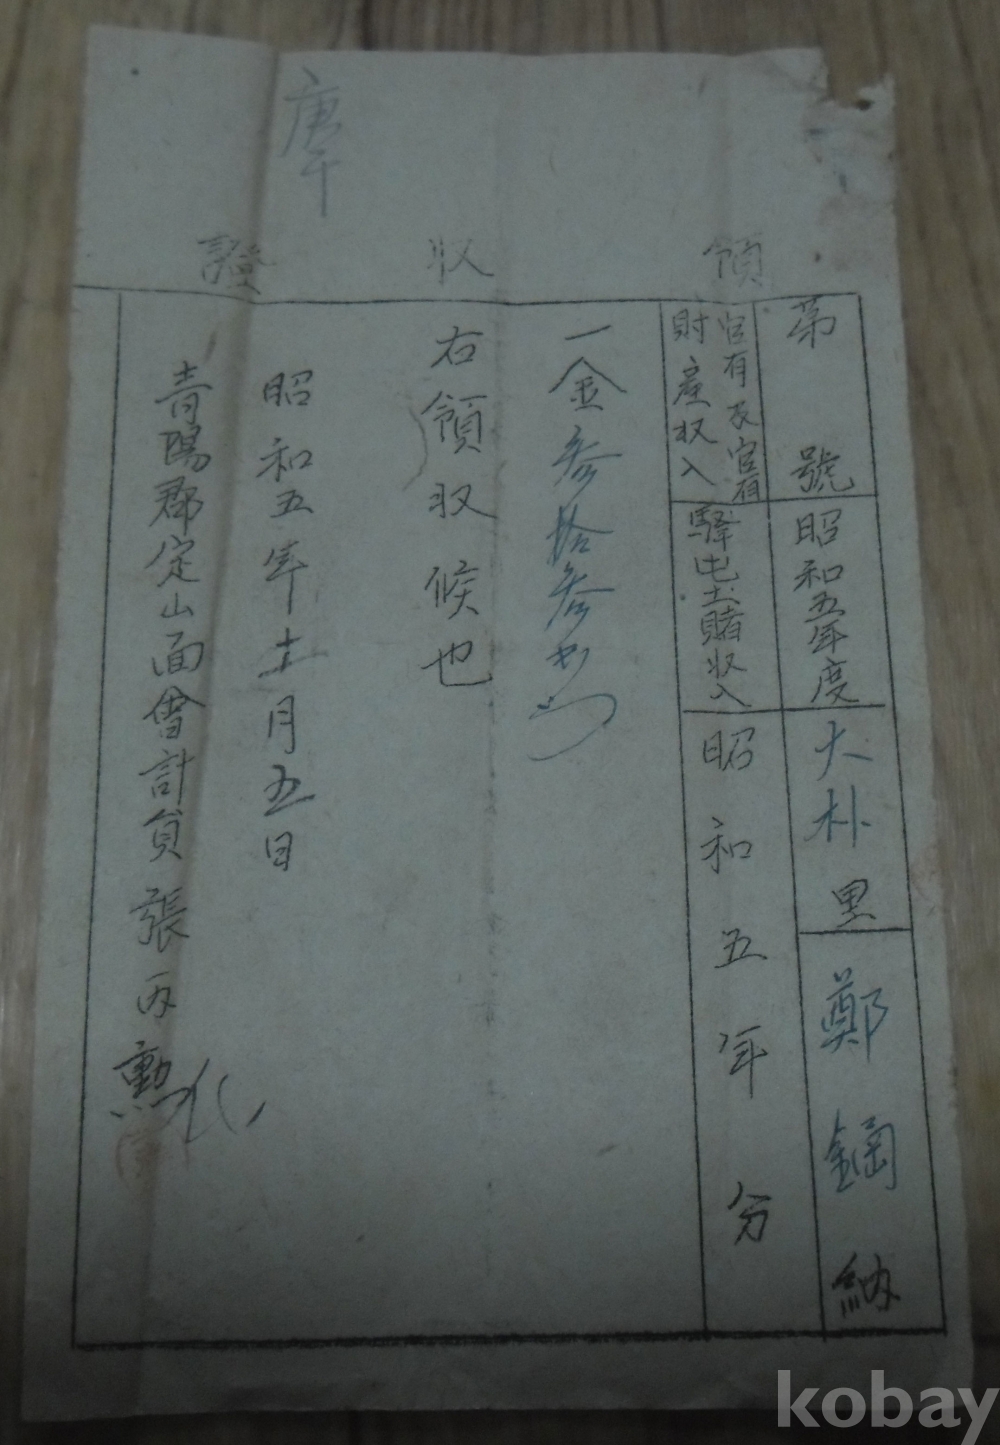 庚午
領収證
第 號
昭和五年度
大朴里
鄭鋼納
官有及官有
財産収入
驛屯土賭収入
昭和五年分
一金参拾参
右領収候也
昭和五年十一月五日
青陽郡定山面會計員張丙勳
kobay